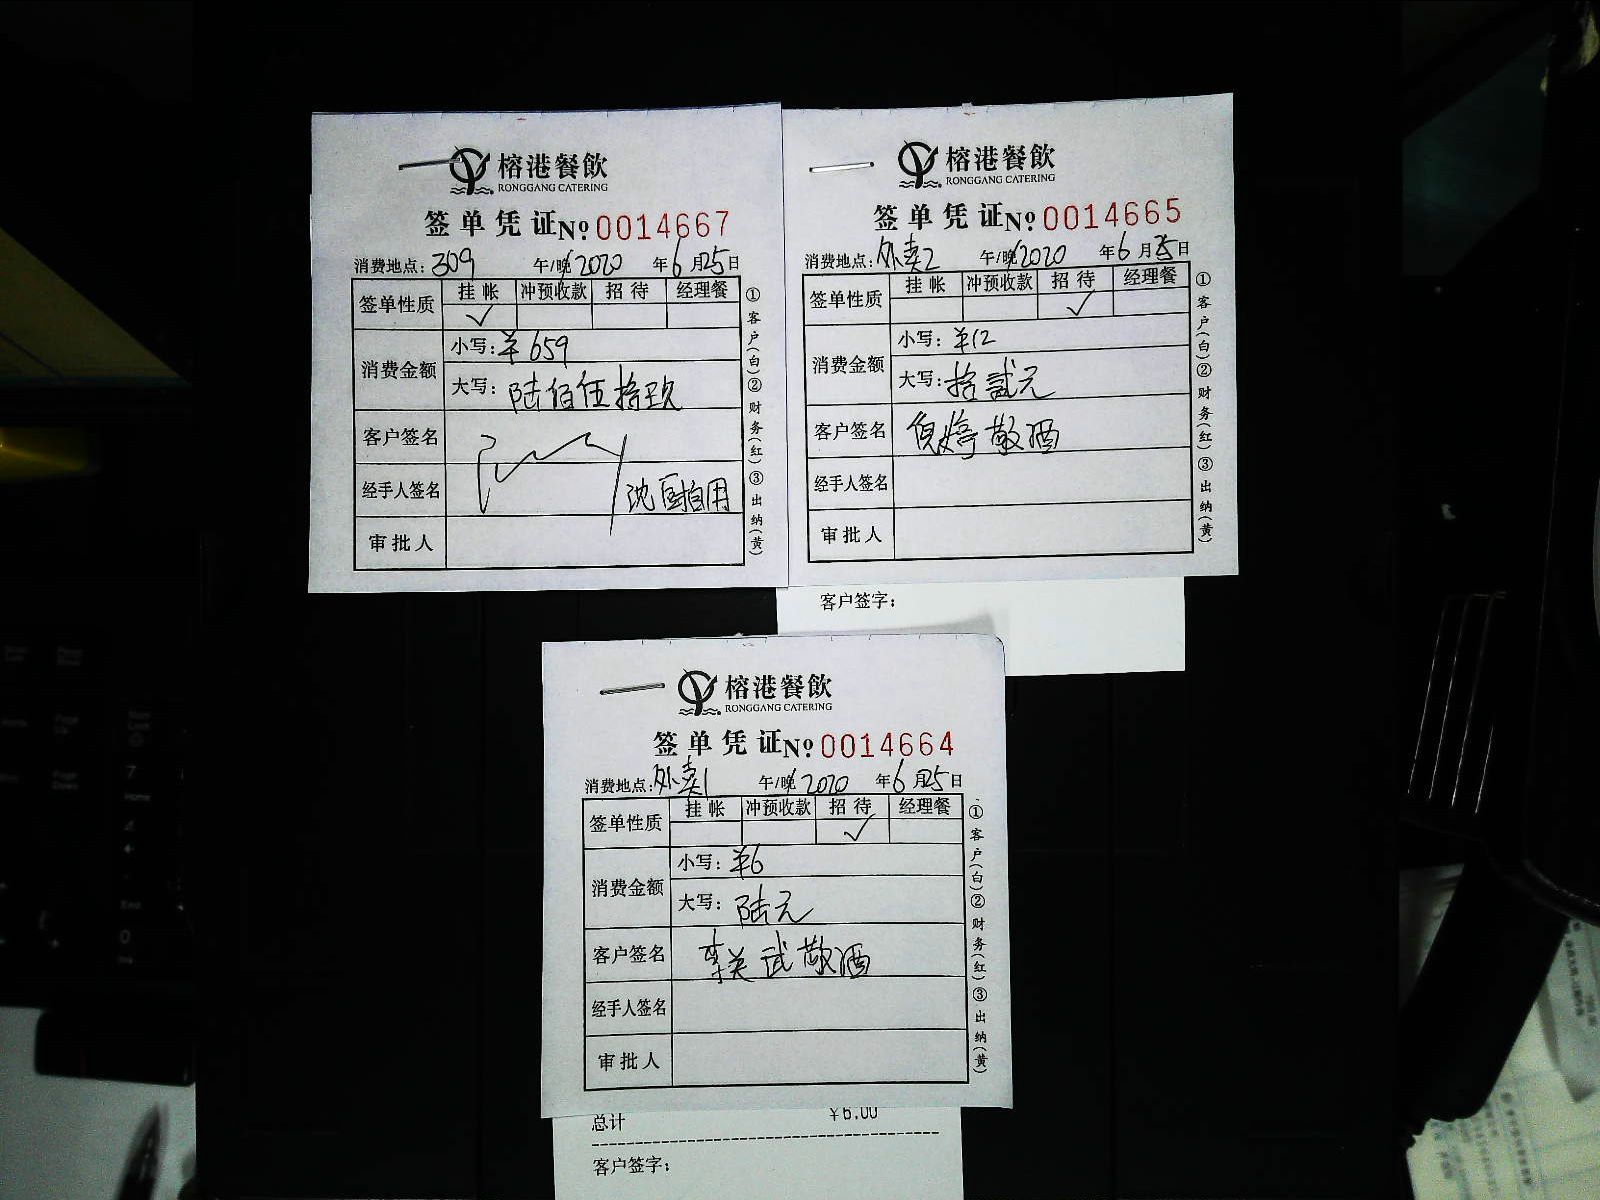 榕港餐飲
RONGGANG CATERING
签单凭证 № 0014667
消费地点: 309 午/晚 2020 年 6 月 25 日
签单性质 挂帐 冲预收款 招待 经理餐
✓
消费金额 小写: ¥659
大写: 陆佰伍拾玖
客户签名
经手人签名
审批人
①客户(白)②财务(红)③出纳(黄)
榕港餐飲
RONGGANG CATERING
签单凭证 № 0014665
消费地点: 外卖2 午/晚 2020 年 6 月 25 日
签单性质 挂帐 冲预收款 招待 经理餐
✓
消费金额 小写: ¥12
大写: 拾贰元
客户签名 倪婷敬酒
经手人签名
审批人
①客户(白)②财务(红)③出纳(黄)
客户签字:
榕港餐飲
RONGGANG CATERING
签单凭证 № 0014664
消费地点: 外卖1 午/晚 2020 年 6 月 25 日
签单性质 挂帐 冲预收款 招待 经理餐
✓
消费金额 小写: ¥6
大写: 陆元
客户签名 武敬酒
经手人签名
审批人
①客户(白)②财务(红)③出纳(黄)
总计 ¥6.00
客户签字: